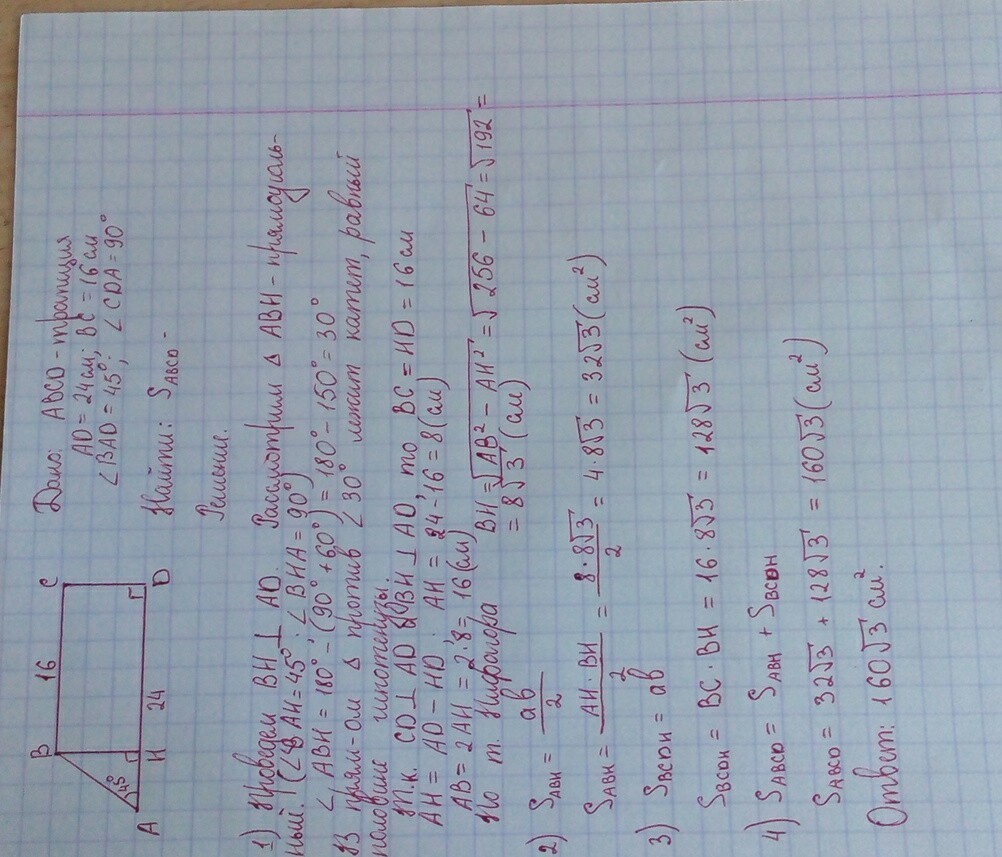 B 16 C
45°
A H 24 D
Дано: ABCD - трапиция
AD = 24см; BC = 16см
∠BAD = 45°; ∠CDA = 90°
Найти: S_ABCD -
Решение.
1) Проведем BH ⊥ AD. Рассмотрим Δ ABH - прямоуголь-
ный. (∠BAH = 45°; ∠BHA = 90°)
∠ABH = 180° - (90° + 60°) = 180° - 150° = 30°
В прям-ом Δ против ∠30° лежит катет, равный
половине гипотенузы.
Т.к. CD ⊥ AD и BH ⊥ AD, то BC = HD = 16см
AH = AD - HD. AH = 24 - 16 = 8 (см)
AB = 2AH = 2·8 = 16 (см)
По т. Пифагора BH = √(AB² - AH²) = √(256 - 64) = √192 =
= 8√3 (см)
2) S_ABH = ab/2
S_ABH = AH · BH/2 = 8·8√3/2 = 4·8√3 = 32√3 (см²)
3) S_BCDH = ab
S_BCDH = BC · BH = 16·8√3 = 128√3 (см²)
4) S_ABCD = S_ABH + S_BCDH
S_ABCD = 32√3 + 128√3 = 160√3 (см²)
Ответ: 160√3 см².